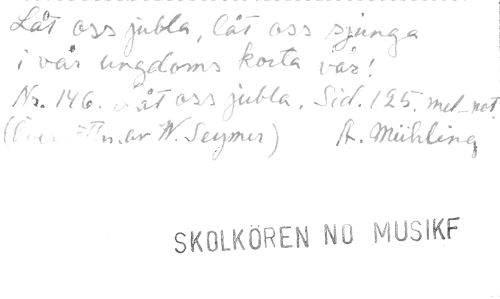 Låt oss jubla, låt oss sjunga
i vår ungdoms korta vår!
Nr. 146. Låt oss jubla. Sid. 125. mel_not.
(Över av W. Seymer) A. Mühling
SKOLKÖREN NO MUSIKF